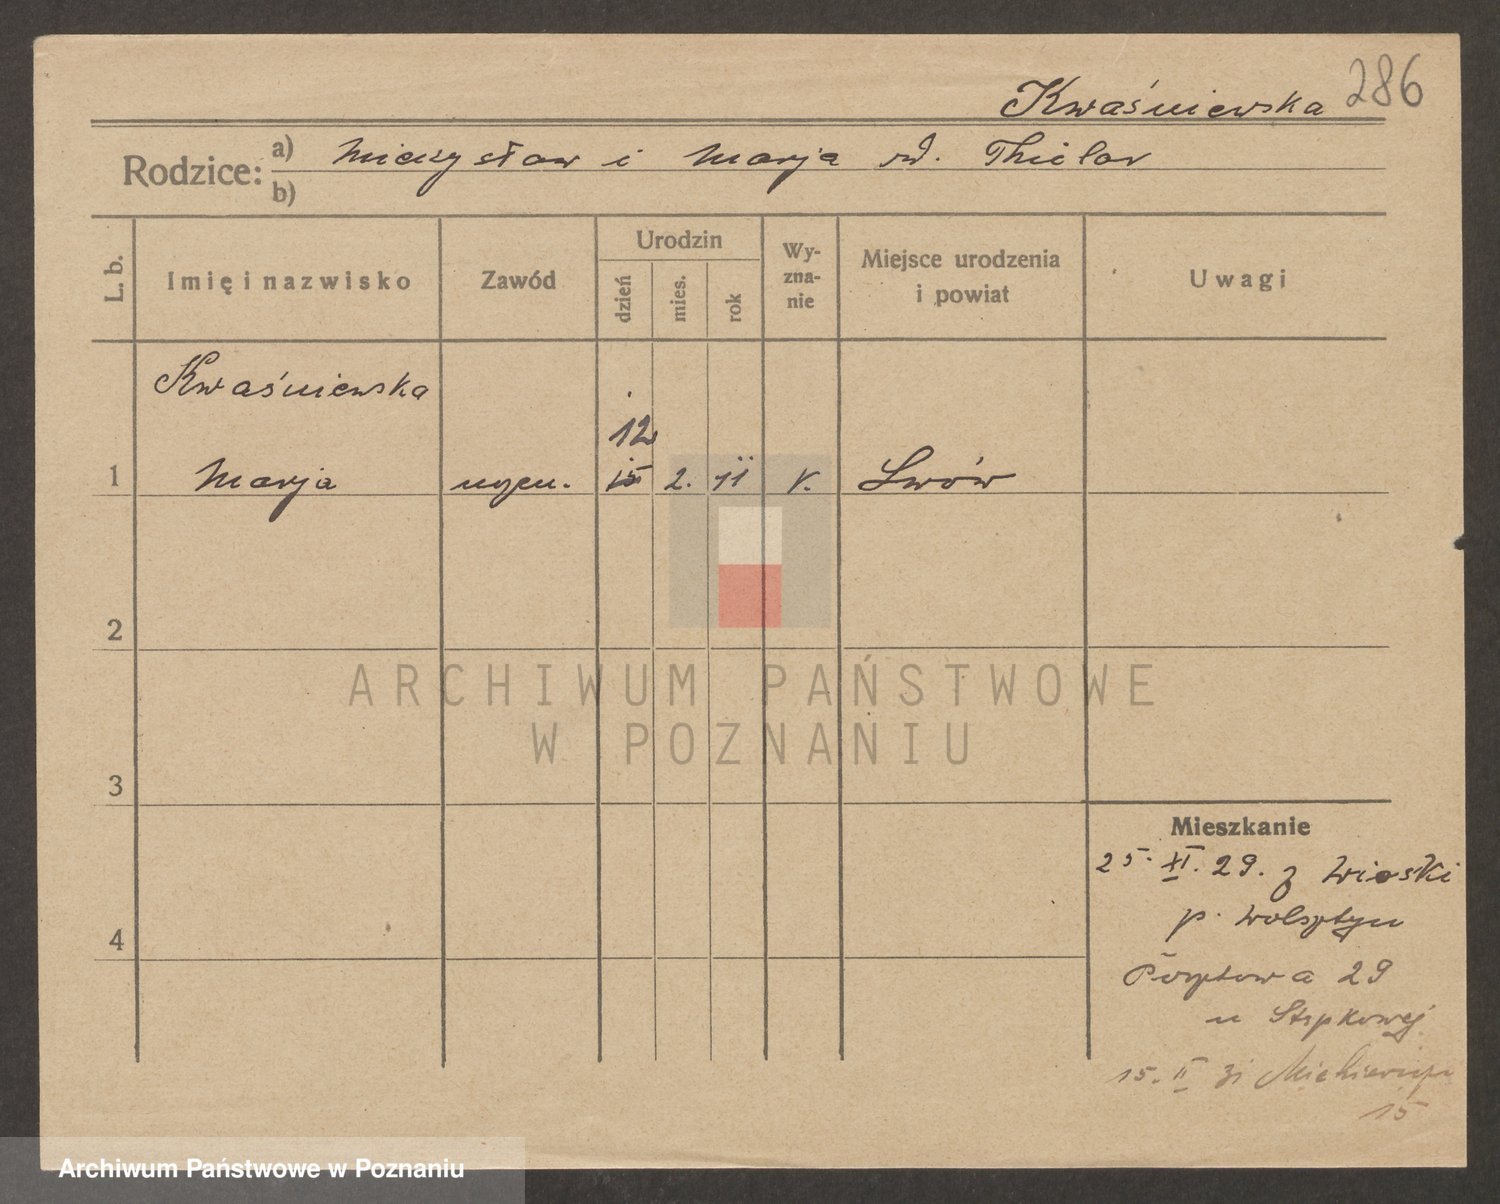 286
Kwaśniewska
Rodzice: a) Mieczysław i Marja Thielor
b)
L. b.
Imię i nazwisko
Zawód
Urodzin
dzień
mies.
rok
Wy-
zna-
nie
Miejsce urodzenia
i powiat
Uwagi
Kwaśniewska
12
1 Marja uczen. 15 2. 11 r. Lwów
2
3
4
ARCHIWUM PAŃSTWOWE
W POZNANIU
Mieszkanie
25. XI. 29. z Wioski
p. Wolsztyn
Pocztowa 29
u
15. II
15
Archiwum Państwowe w Poznaniu